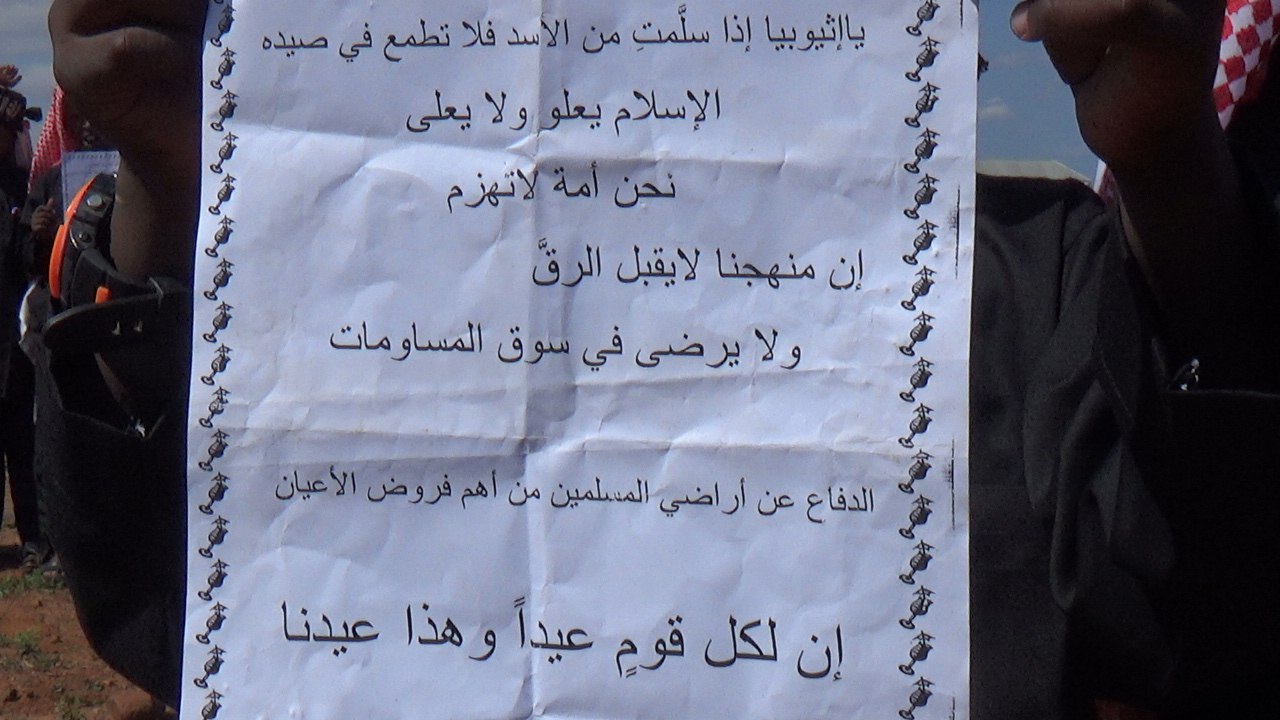 ياإثيوبيا إذا سلَّمتِ من الأسد فلا تطمع في صيده
الإسلام يعلو ولا يعلى
نحن أمة لاتهزم
إن منهجنا لايقبل الرقَّ
ولا يرضى في سوق المساومات
الدفاع عن أراضي المسلمين من أهم فروض الأعيان
إن لكل قومٍ عيداً وهذا عيدنا